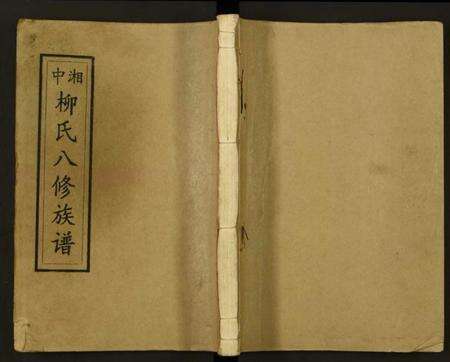 湘中
柳氏八修族谱